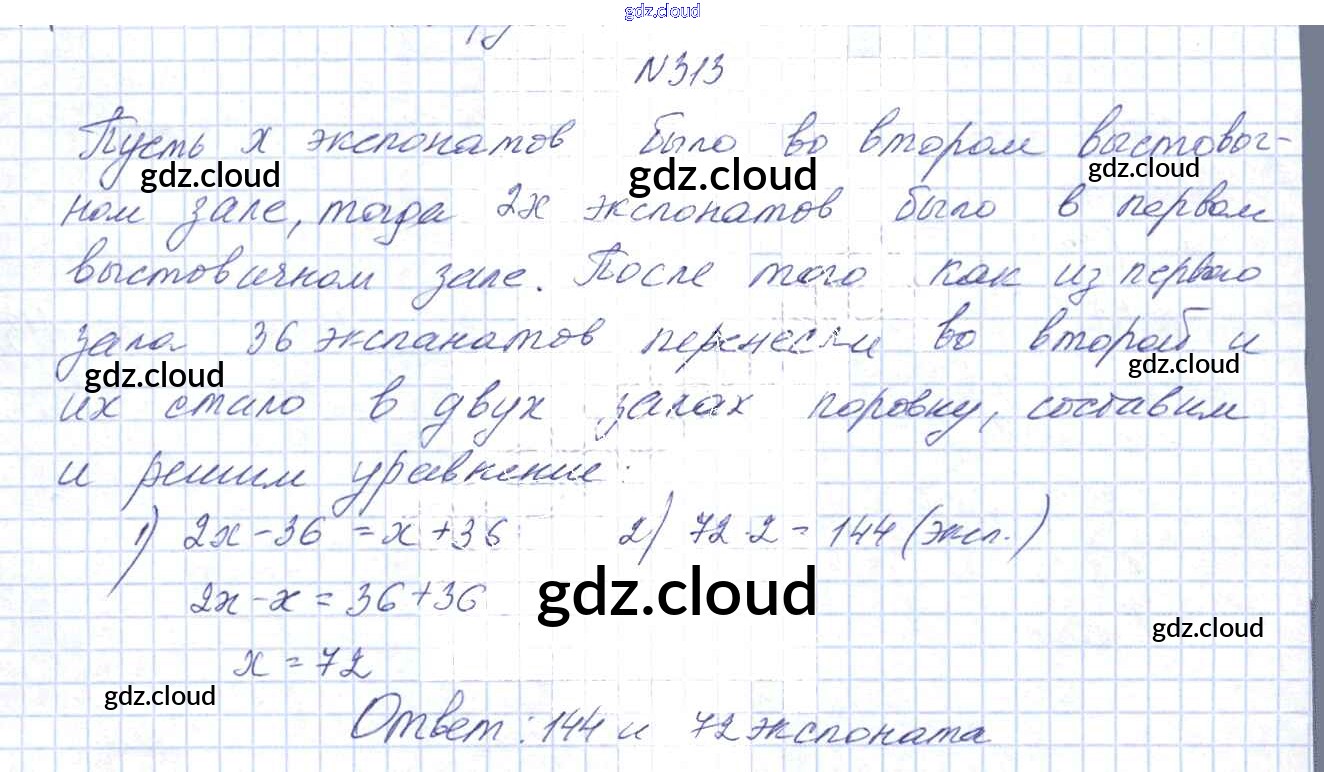 gdz.cloud
N313
Пусть x экспонатов было во втором выстовоч-
gdz.cloud gdz.cloud gdz.cloud
ном зале, тогда 2x экспонатов было в первом
выстовичном зале. После того как из первого
зала 36 экспанатов перенесли во второй и
gdz.cloud gdz.cloud
их стало в двух залах поровну, составим
и решим уравнение:
1) 2x - 36 = x + 36 2) 72·2 = 144 (эксп.)
2x - x = 36 + 36
gdz.cloud gdz.cloud
x = 72
gdz.cloud
Ответ: 144 и 72 экспоната